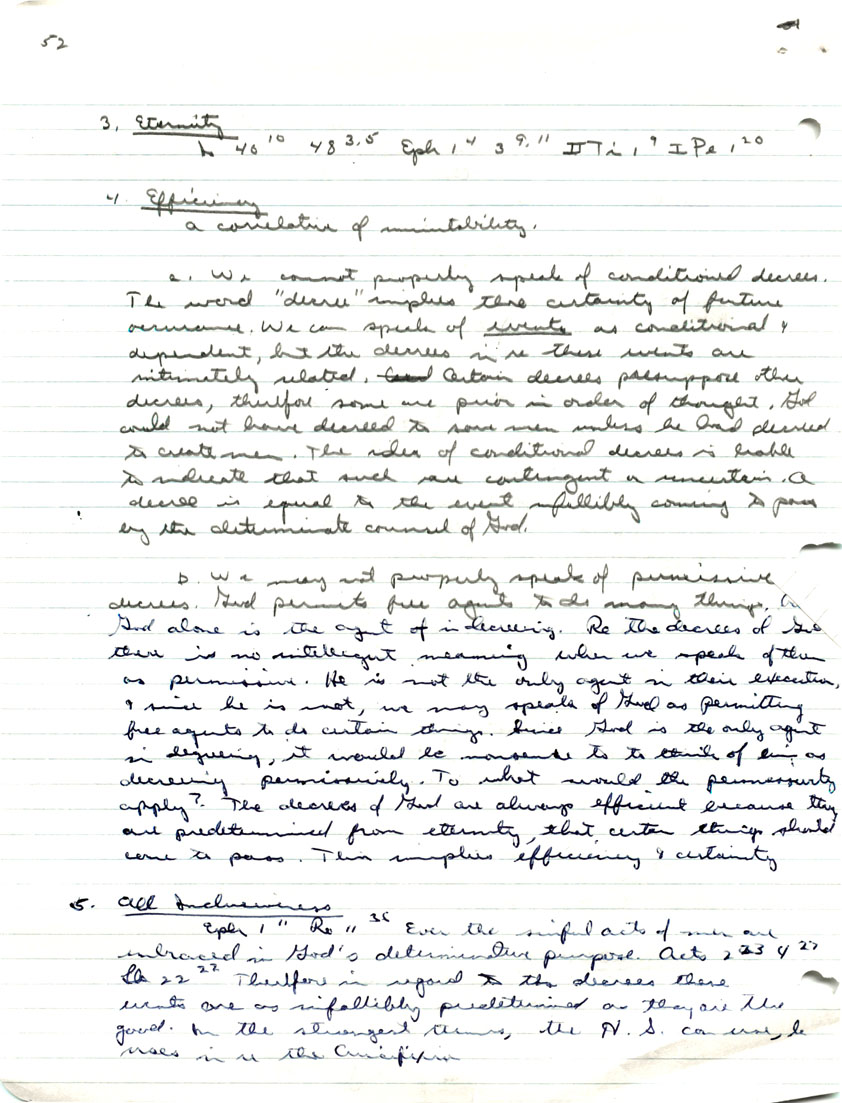 52
3. Eternity
Is 40 10 48 3,5 Eph 1 4 3 9,11 II Ti 1 9 I Pe 1 20
4. Efficiency
a correlative of immutability.
a. We cannot properly speak of conditioned decrees.
The word "decree" implies the certainty of future
occurance. We can speak of events as conditional &
dependent, but the decrees in re these events are
intimately related. Certain decrees presuppose other
decrees, therefore some are prior in order of thought. God
could not have decreed to save men unless he had decreed
to create men. The idea of conditional decrees is liable
to indicate that such are contingent or uncertain. A
decree is equal to the event infallibly coming to pass
by the determinate counsel of God.
b. We may not properly speak of permissive
decrees. God permits free agents to do many things.
God alone is the agent of in decreeing. Re the decrees of God
there is no intelligent meaning when we speak of them
as permissive. He is not the only agent in their execution,
& since he is not, we may speak of God as permitting
free agents to do certain things. Since God is the only agent
in degreeing, it would be nonsense to to think of him as
decreeing permissively. To what would the permissivity
apply? The decrees of God are always efficient because they
are predetermined from eternity, that certain things should
come to pass. This implies efficiency & certainty
5. All Inclusiveness
Eph 1 11 Ro 11 36 Even the sinful acts of men are
embraced in God's determinative purpose. Acts 2 23 4 27
Lk 22 22 Therefore in regard to the decrees these
events are as infallibly predetermined as they are the
good. In the strongest terms, the H. S. can use, he
uses in re the Crucifixion